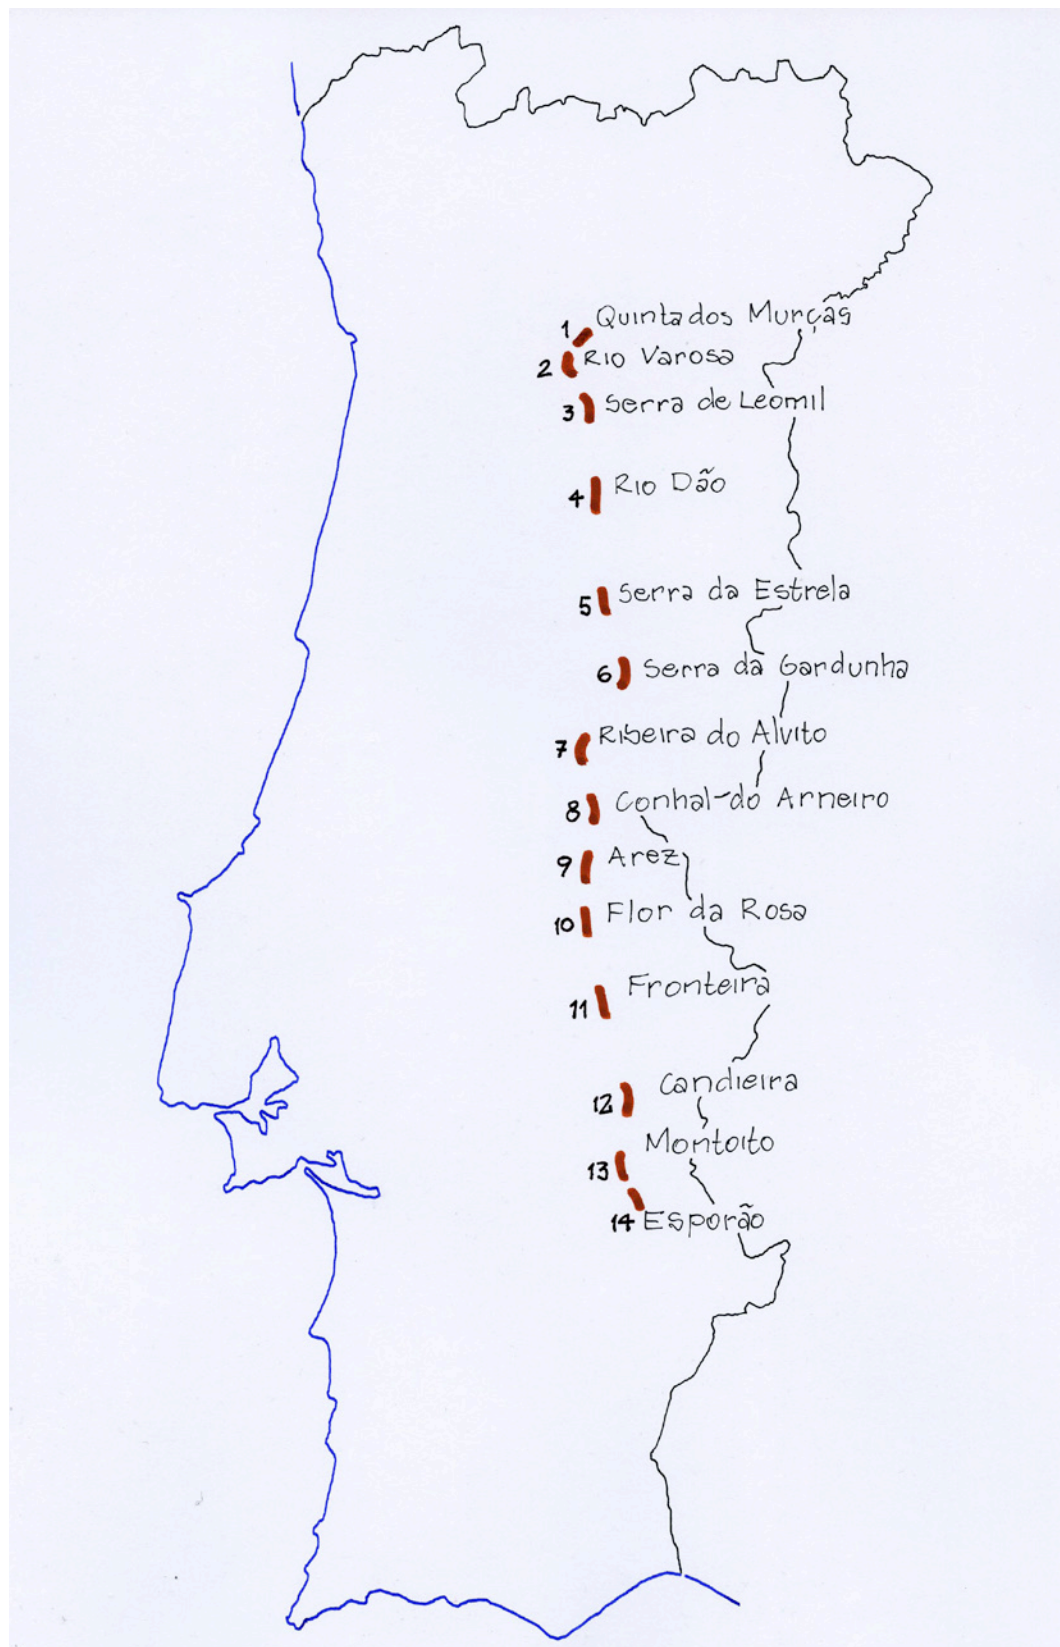 1 Quinta dos Murças
2 Rio Varosa
3 Serra de Leomil
4 Rio Dão
5 Serra da Estrela
6 Serra da Gardunha
7 Ribeira do Alvito
8 Conhal-do Arneiro
9 Arez
10 Flor da Rosa
11 Fronteira
12 Candieira
13 Montoito
14 Esporão